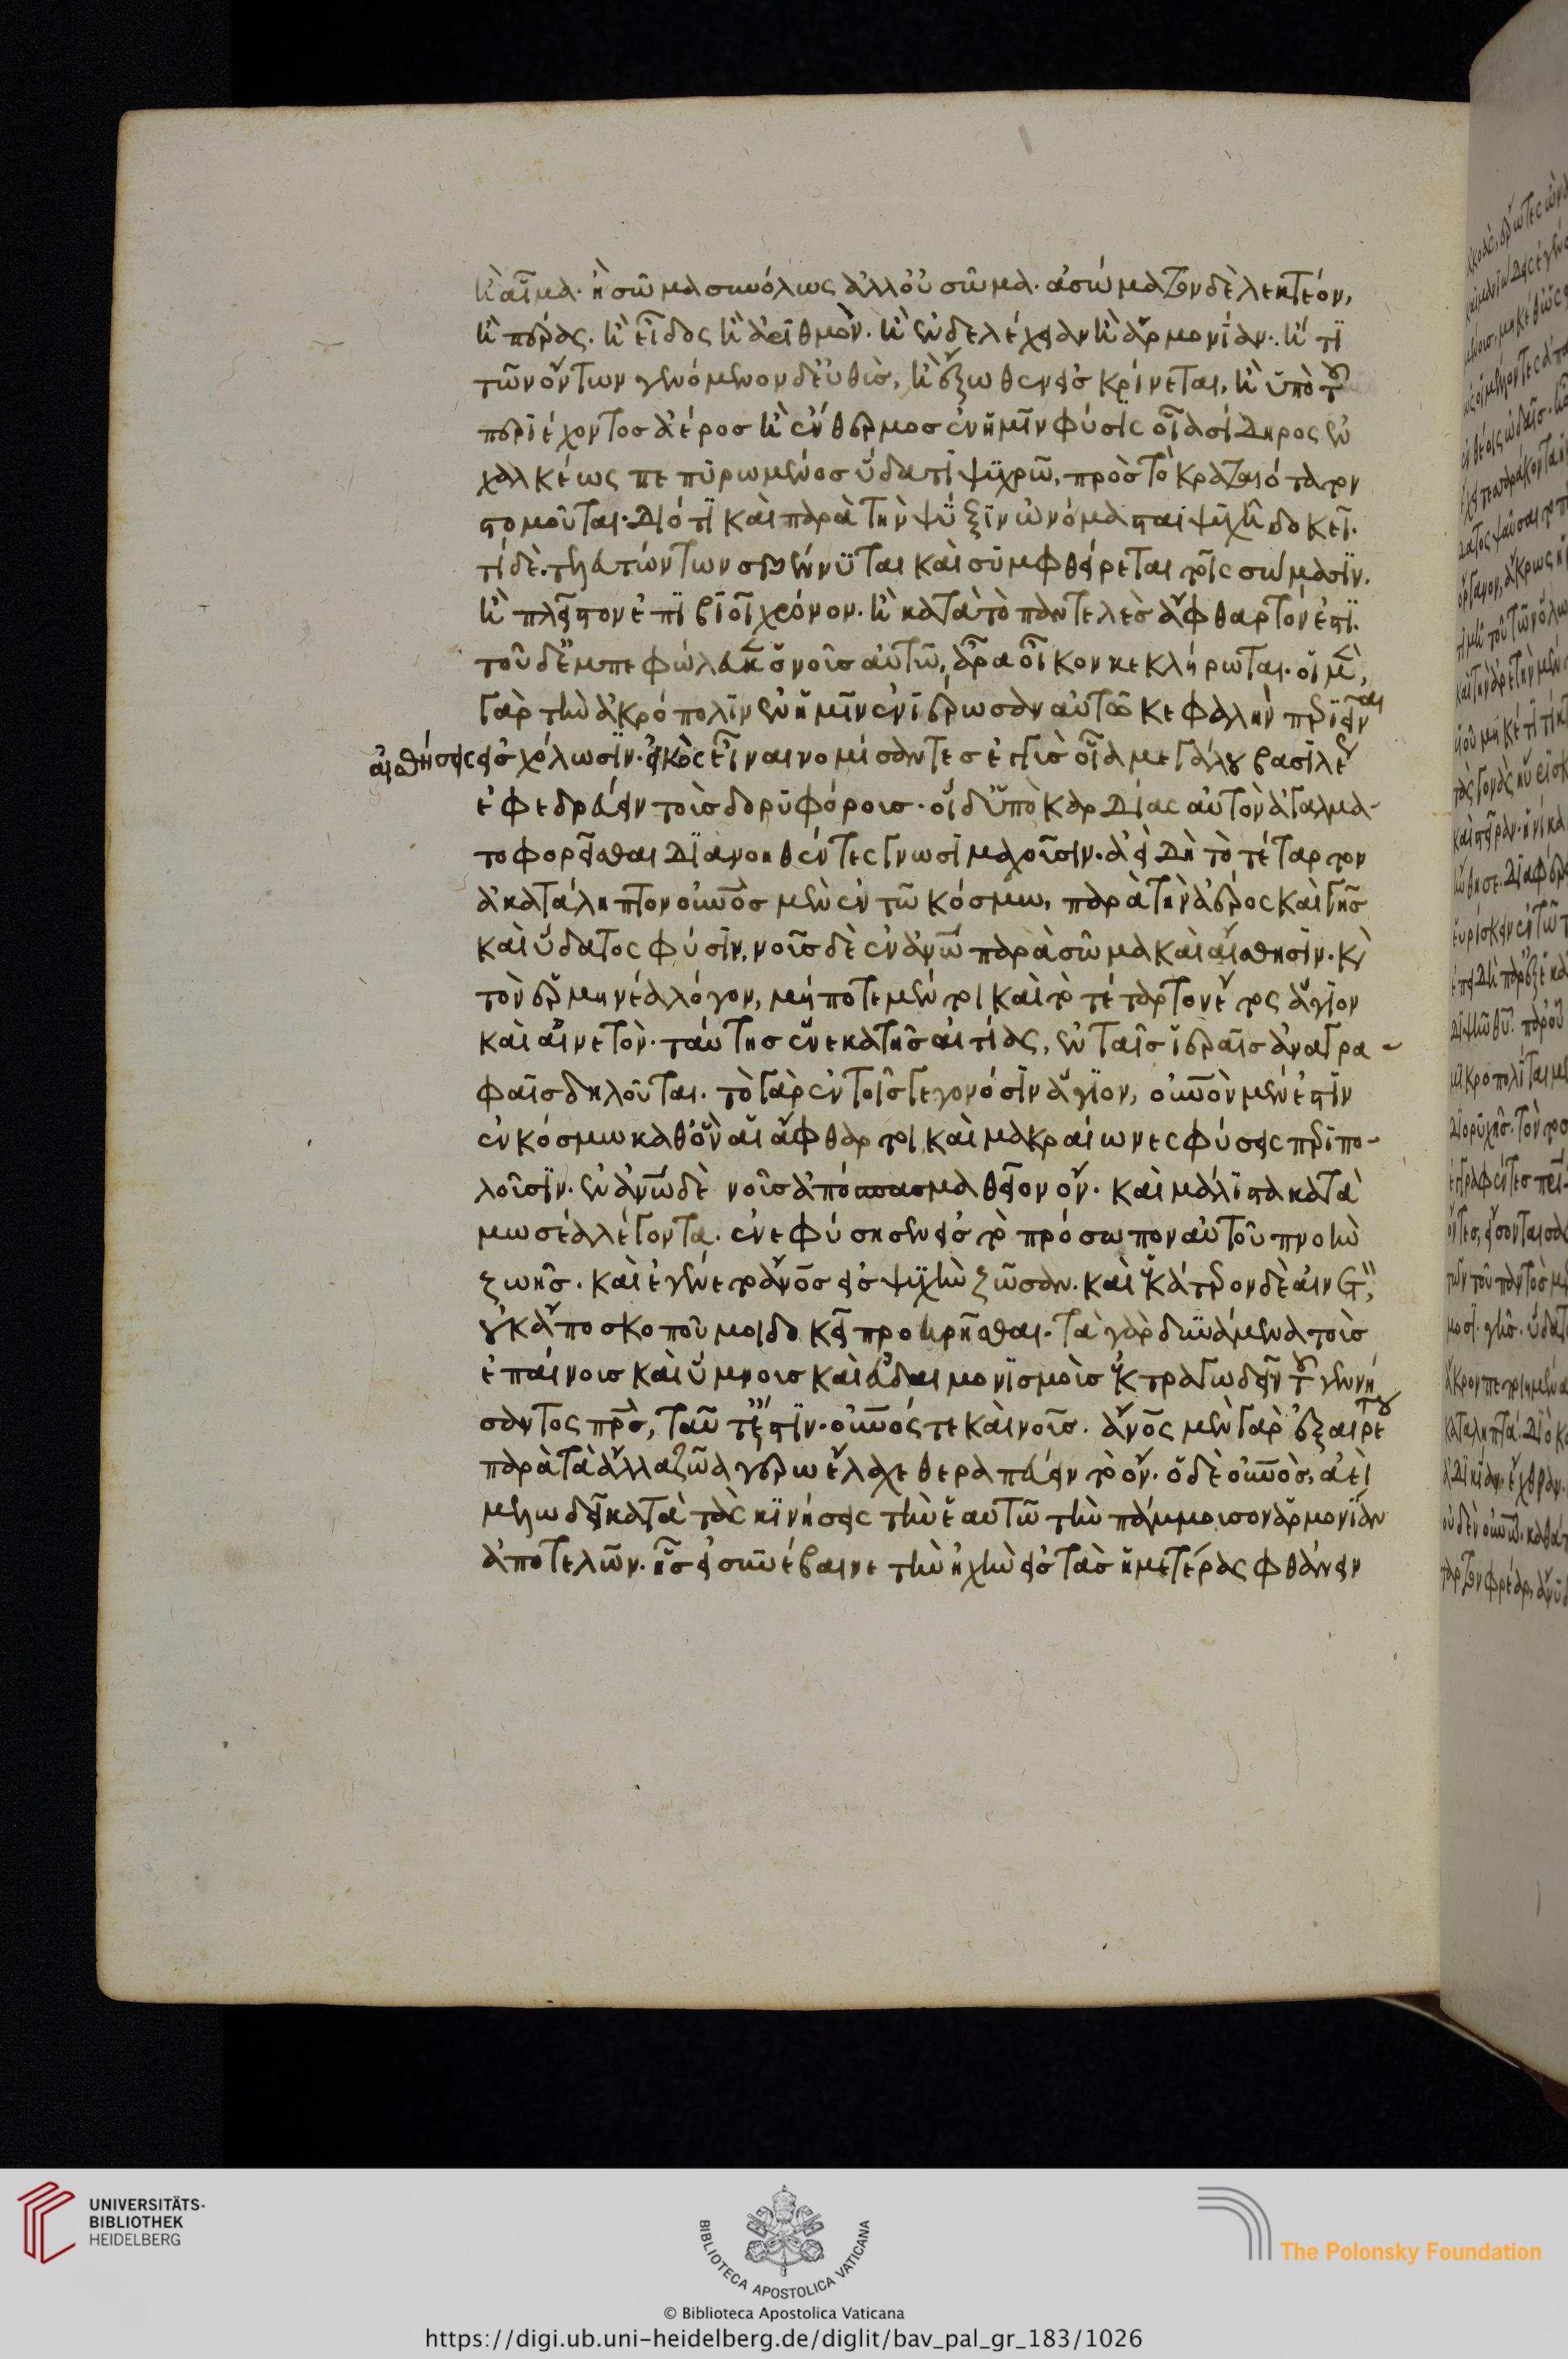 ἢ αἷμα· ἢ σῶμα συνόλως ἀλλ' οὐ σῶμα· ἀσώματον δὲ λεκτέον,
ἢ πέρας. ἢ εἶδος ἢ ἀριθμὸν. ἢ ἐνδελέχειαν ἢ ἁρμονίαν. ἢ τί
τῶν ὄντων γενόμενον δ' εὐθὺς, ἢ ἔξωθεν εἰσκρίνεται, ἢ ὑπὸ τοῦ
περιέχοντος ἀέρος ἢ ἔνθερμος ἐν ἡμῖν φύσις οἷα σίδηρος ἐν
χαλκέως πεπυρωμένος ὕδατι ψυχρῶ, πρὸς τὸ κραταιότατον
στομοῦται· διότι καὶ παρὰ τὴν ψῦξιν ὠνομάσθαι ψυχὴ δοκεῖ.
τί δέ. τελευτώντων σβέννυται καὶ συμφθείρεται τοῖς σώμασιν.
ἢ πλεῖστον ἐπιβιοῖ χρόνον. ἢ κατὰ τὸ παντελὲς ἄφθαρτόν ἐστι.
τοῦ δ' ἐμπεφώλευκεν ὁ νοῦς αὐτῶ, ἆρα οἶκον κεκλήρωται. οἱ μὲν
γὰρ τὴν ἀκρόπολιν ἐν ἡμῖν ἐνίδρωσαν αὐτῶ κεφαλὴν περὶ ἣν αἱ
αἰσθήσεις εἰσ χόλωσιν. εἰκὸς εἶναι νομίσαντες ἐγγὺς οἷα μεγάλου βασιλέως
ἐφεδρεύειν τοῖς δορυφόροις. οἱ δ' ὑπὸ καρδίας αὐτὸν ἀγαλμα-
τοφορεῖσθαι διανοηθέντες γνωσιμαχοῦσιν. ἀεὶ δὴ τὸ τέταρτον
ἀκατάληπτον οὐρανὸς μὲν ἐν τῶ κόσμω, παρὰ τὴν ἀέρος καὶ γῆς
καὶ ὕδατος φύσιν, νοῦς δὲ ἐν ἀνθρώπω παρὰ σῶμα καὶ αἴσθησιν. καὶ
τὸν ἑρμηνέα λόγον, μήποτε μέντοι καὶ τὸ τέταρτον ἔτος ἅγιον
καὶ αἰνετὸν. ταύτης ἕνεκα τῆς αἰτίας, ἐν ταῖς ἱεραῖς ἀναγρα-
φαῖς δηλοῦται. τὸ γὰρ ἐν τοῖς γεγονόσιν ἅγιον, οὐρανὸν μέν ἐστιν
ἐν κόσμω καθ' ὃν αἱ ἄφθαρτοι καὶ μακραίωνες φύσεις περιπο-
λοῦσιν. ἐν ἀνθρώπω δὲ νοῦς ἀπόσπασμα θεῖον ὄν. καὶ μάλιστα κατὰ
μωσέα λέγοντα. ἐνεφύσησεν εἰς τὸ πρόσωπον αὐτοῦ πνοὴν
ζωῆς. καὶ ἐγένετο ἄνθρωπος εἰς ψυχὴν ζῶσαν. καὶ ἑκάτερον δὲ αἰνετὸν
οὐκ ἄπο σκοποῦ μοι δοκεῖ προειρῆσθαι. τὰ γὰρ δυνάμενα τοῖς
ἐπαίνοις καὶ ὕμνοις καὶ εὐδαιμονισμοῖς ἐκτραγωδεῖν τοῦ γεννή
σαντος πατρός, ταῦτ' ἔστιν. οὐρανός τε καὶ νοῦς. ἄνθρωπος μὲν γὰρ ἐξαιρέτου
παρὰ τὰ ἄλλα ζῶα γέρω ἔλαχε θεραπεύειν τὸ ὄν. ὁ δὲ οὐρανὸς, ἀεὶ
μελωδεῖ κατὰ τὰς κινήσεις τὴν ἑαυτῶ τὴν πάμμουσον ἁρμονίαν
ἀποτελῶν. ἧς εἰ συνέβαινε τὴν ἠχὴν εἰς τὰς ἡμετέρας φθάνειν
UNIVERSITÄTS-
BIBLIOTHEK
HEIDELBERG
BIBLIOTECA APOSTOLICA VATICANA
The Polonsky Foundation
© Biblioteca Apostolica Vaticana
https://digi.ub.uni-heidelberg.de/diglit/bav_pal_gr_183/1026